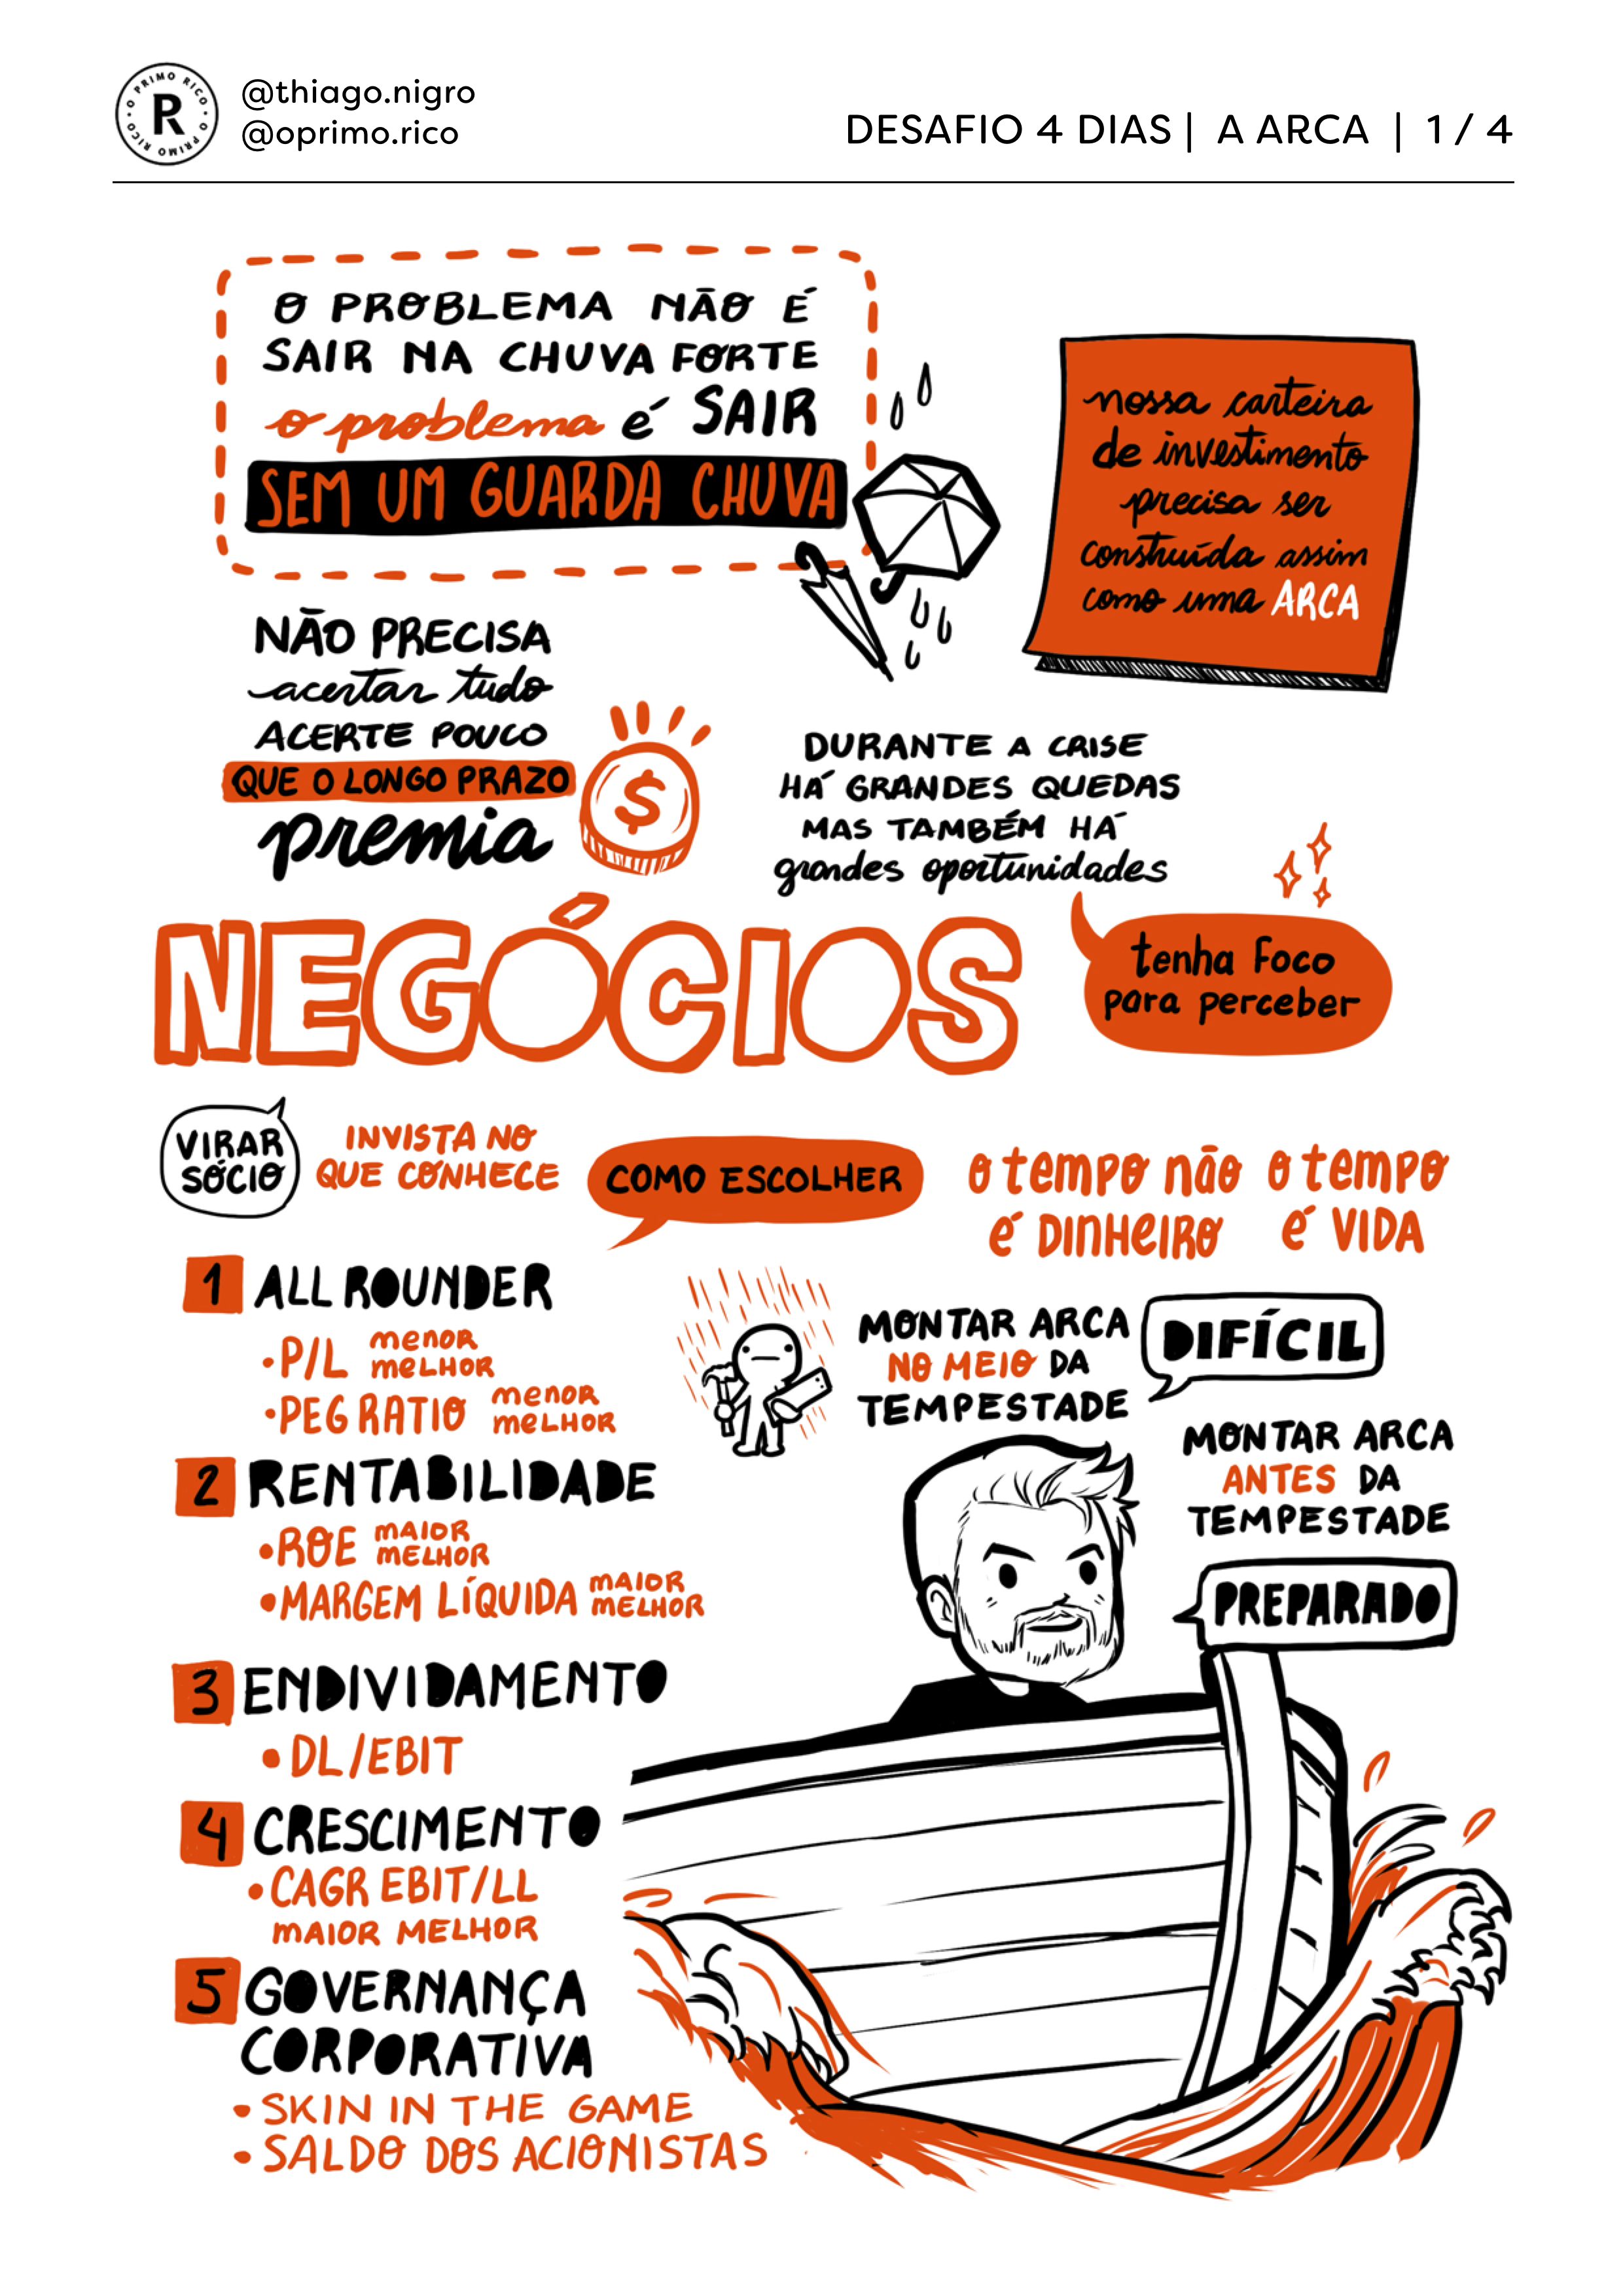 O PRIMO RICO · O PRIMO RICO ·
R
@thiago.nigro
@oprimo.rico
DESAFIO 4 DIAS | A ARCA | 1 / 4
O PROBLEMA NÃO É
SAIR NA CHUVA FORTE
o problema é SAIR
SEM UM GUARDA CHUVA
nossa carteira
de investimento
precisa ser
construída assim
como uma ARCA
NÃO PRECISA
acertar tudo
ACERTE POUCO
QUE O LONGO PRAZO
premia
$
DURANTE A CRISE
HÁ GRANDES QUEDAS
MAS TAMBÉM HÁ
grandes oportunidades
tenha foco
para perceber
NEGÓCIOS
VIRAR
SÓCIO
INVISTA NO
QUE CONHECE
COMO ESCOLHER
o tempo não
é DINHEIRO
o tempo
é VIDA
1 ALL ROUNDER
•P/L menor
melhor
•PEG RATIO menor
melhor
2 RENTABILIDADE
•ROE MAIOR
MELHOR
•MARGEM LÍQUIDA MAIOR
MELHOR
3 ENDIVIDAMENTO
• DL/EBIT
4 CRESCIMENTO
•CAGR EBIT/LL
MAIOR MELHOR
5 GOVERNANÇA
CORPORATIVA
• SKIN IN THE GAME
• SALDO DOS ACIONISTAS
MONTAR ARCA
NO MEIO DA
TEMPESTADE
DIFÍCIL
MONTAR ARCA
ANTES DA
TEMPESTADE
PREPARADO